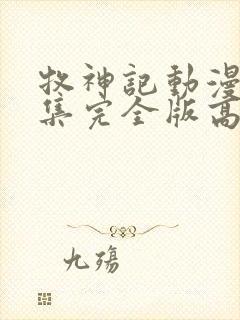 牧神記動漫
集完全版高
九殤